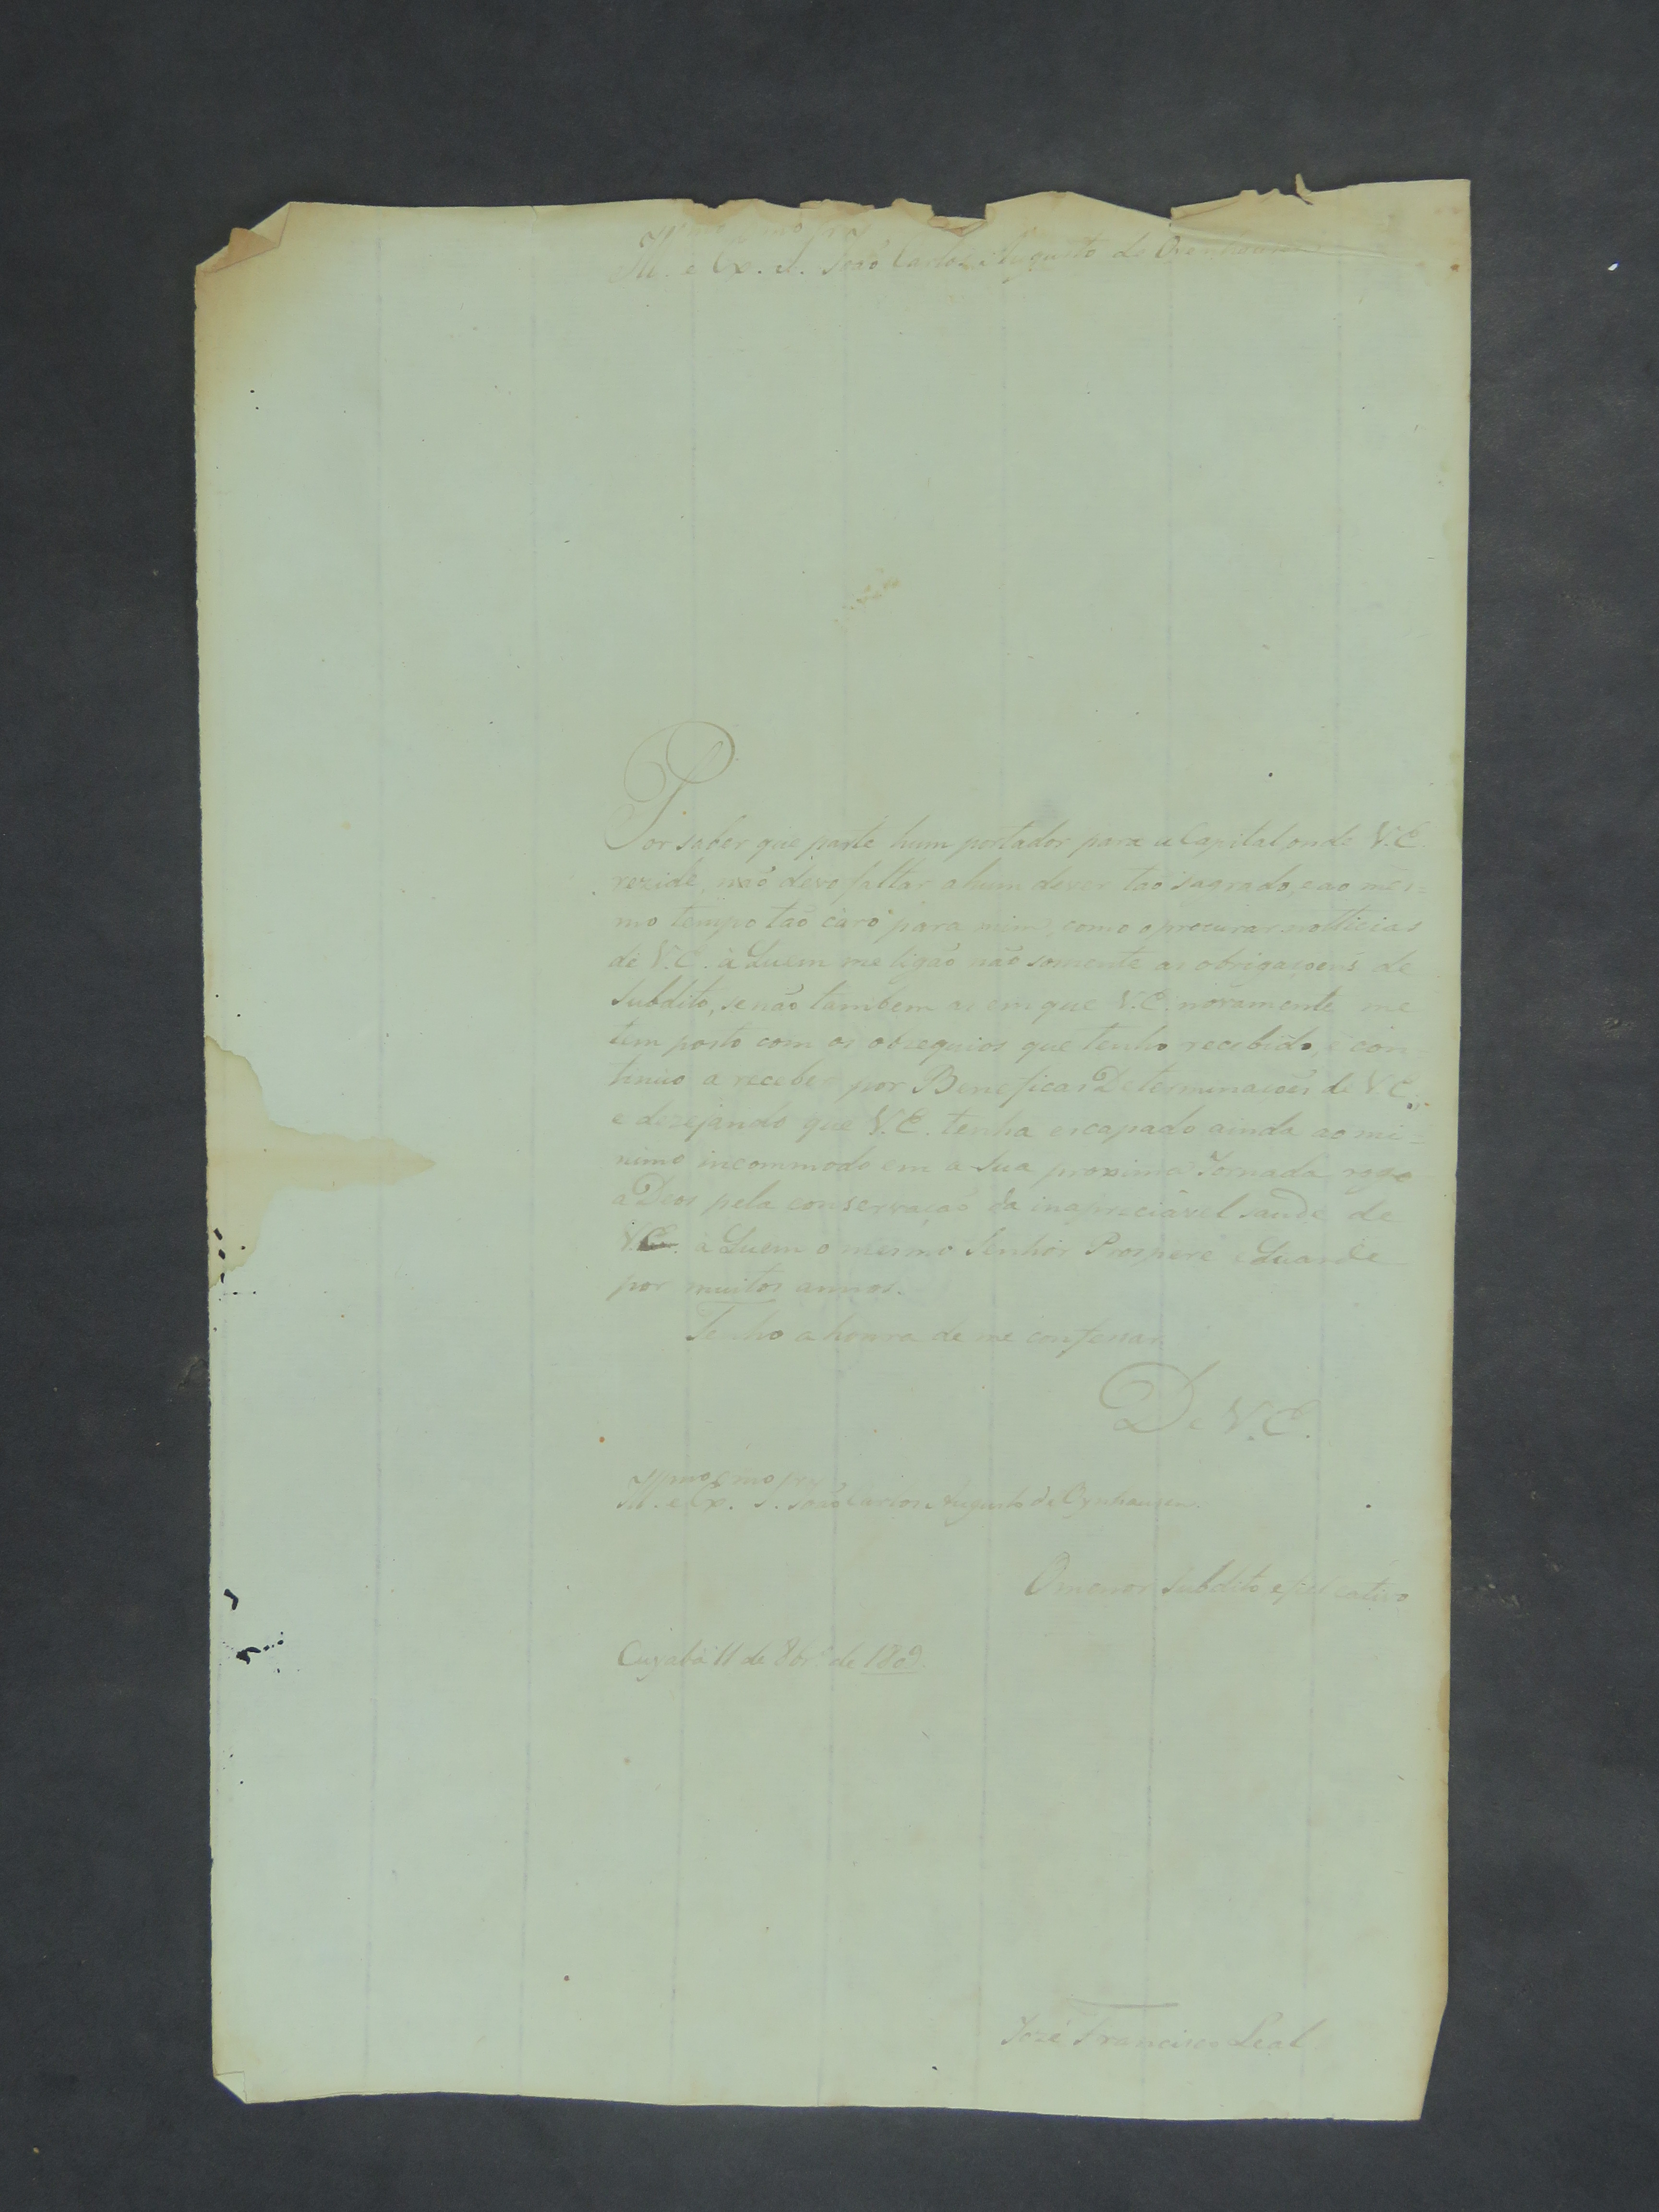 Ill.mo e Ex.mo Snr João Carlos Augusto de Oeynhausen
Por saber que parte hum portador para a Capital onde V.E.
rezide, naõ devo faltar a hum dever taõ sagrado, e ao mes=
mo tempo taõ caro para mim, como o procurar notticias
de V.E. à Quem me ligaõ naõ somente as obrigaçoens de
Subdito, se naõ tambem as em que V.E. novamente me
tem posto com os obzequios que tenho recebido, e con=
tinuo a receber por Beneficas Determinações de V.E.,
e dezejando que V.E. tenha escapado ainda ao mi=
nimo incommodo em a Sua proxima Jornada rogo
a Deos pela conservaçaõ da inapreciavel saude de
V.E. à Quem o mesmo Senhor Prospere e Guarde
por muitos annos.
Tenho a honra de me confessar
De V.E.
Ill.mo e Ex.mo Snr João Carlos Augusto de Oynhausen.
O menor Subdito e fiel cativo
Cuyabá 11 de 8br.o de 1809.
Jozé Francisco Leal